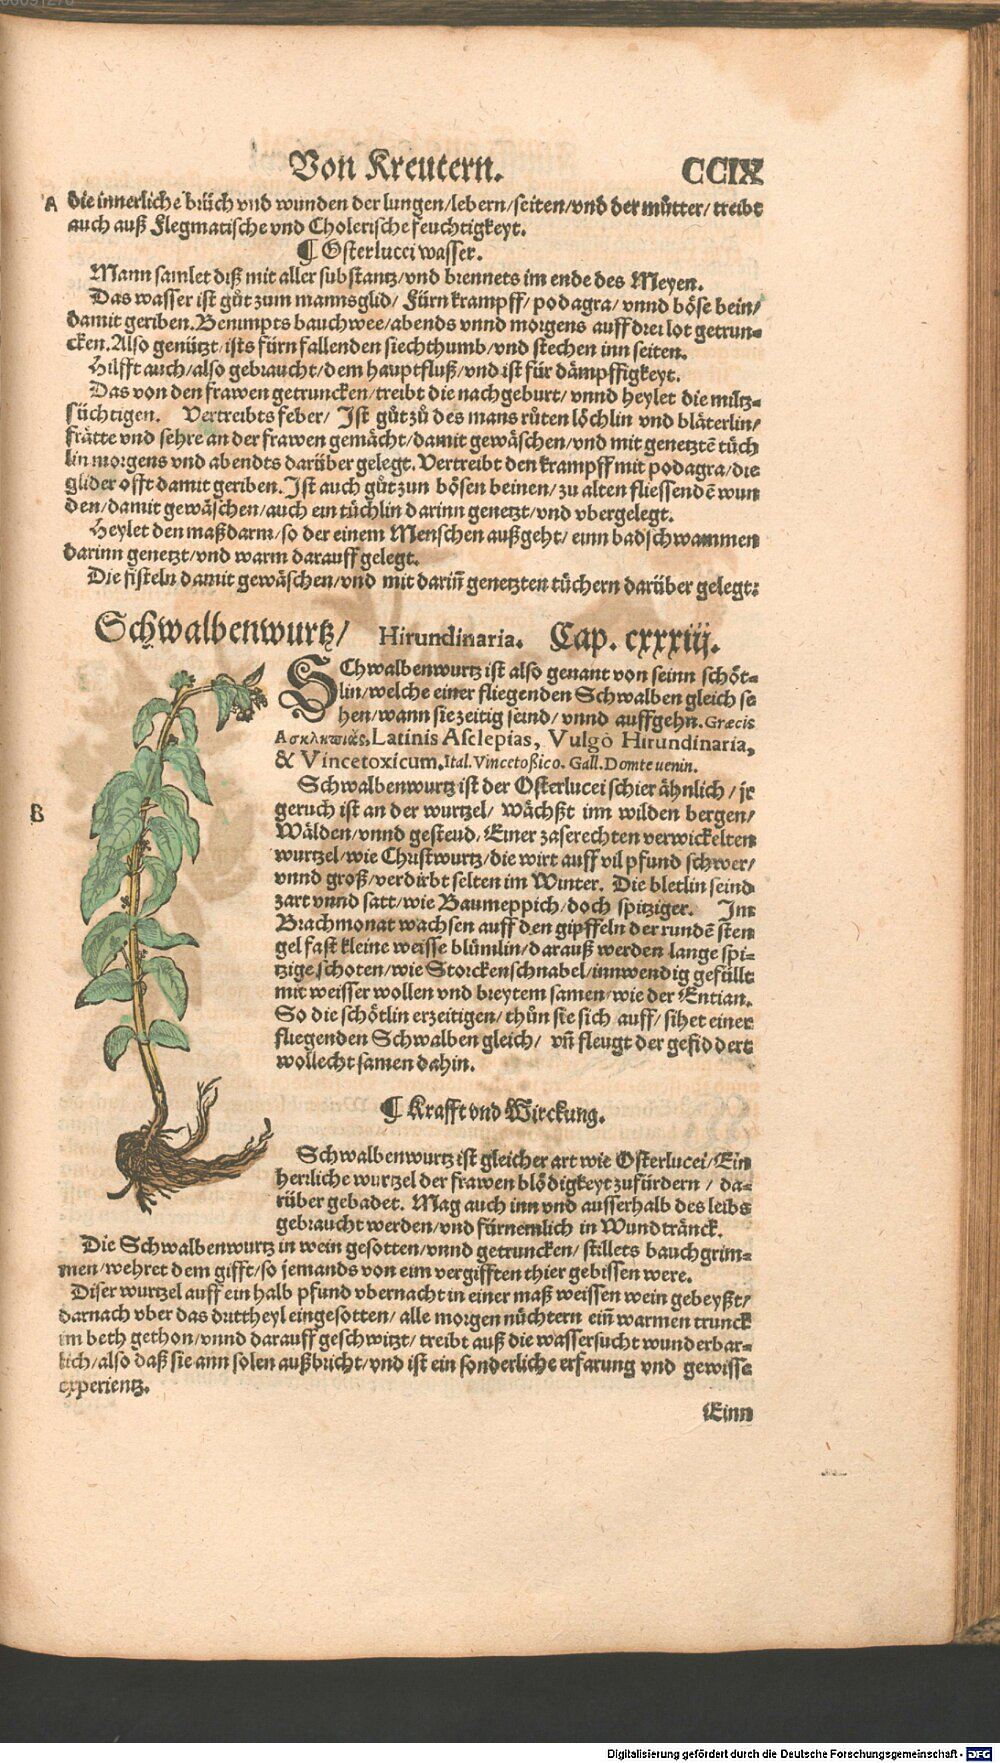 Von Kreutern. CCIX
A die innerliche brüch vnd wunden der lungen/lebern/seiten/vnd der můtter/treibt
auch auß Flegmatische vnd Cholerische feuchtigkeyt.
¶ Osterlucci wasser.
Mann samlet diß mit aller substantz/vnd brennets im ende des Meyen.
Das wasser ist gůt zum mannsglid/ Fürn krampff/ podagra/ vnnd böse bein/
damit geriben. Benimpts bauchwee/abends vnnd morgens auff drei lot getrun-
cken. Also genützt/ists fürn fallenden siechthumb/vnd stechen inn seiten.
Hilfft auch/also gebraucht/dem hauptfluß/vnd ist für dämpffigkeyt.
Das von den frawen getruncken/treibt die nachgeburt/ vnnd heylet die miltz-
süchtigen. Vertreibts feber/ Ist gůt zů des mans růten löchlin vnd bläterlin/
frätte vnd sehre an der frawen gemächt/damit gewäschen/vnd mit genetztē tüch
lin morgens vnd abendts darüber gelegt. Vertreibt den krampff mit podagra/die
glider offt damit geriben. Ist auch gůt zun bösen beinen/zu alten fliessendē wun
den/damit gewäschen/auch ein tüchlin darinn genetzt/vnd vbergelegt.
Heylet den maßdarm/so der einem Menschen außgeht/ einn badschwammen
darinn genetzt/vnd warm darauff gelegt.
Die fisteln damit gewäschen/vnd mit dariñ genetzten tüchern darüber gelegt:
Schwalbenwurtz/ Hirundinaria. Cap. cxxxiij.
SChwalbenwurtz ist also genant von seinn schöt-
lin/welche einer fliegenden Schwalben gleich se
hen/wann sie zeitig seind/ vnnd auffgehn. Græcis
Ασκληπιὰς, Latinis Asclepias, Vulgò Hirundinaria,
& Vincetoxicum. Ital. Vincetoßico. Gall. Domte uenin.
Schwalbenwurtz ist der Osterlucei schier ähnlich / jr
B geruch ist an der wurtzel/ wächßt inn wilden bergen/
Wälden/vnnd gesteud/ Einer zaserechten verwickelten
wurtzel/wie Christwurtz/die wirt auff vil pfund schwer/
vnnd groß/verdirbt selten im Winter. Die bletlin seind
zart vnnd satt/wie Baumeppich/doch spitziger. Im
Brachmonat wachsen auff den gipffeln der rundē sten
gel fast kleine weisse blümlin/darauß werden lange spi-
tzige schoten/wie Storckenschnabel/innwendig gefüllt
mit weisser wollen vnd breytem samen/wie der Entian.
So die schötlin erzeitigen/ thůn sie sich auff/ sihet einer
fliegenden Schwalben gleich/ vñ fleugt der gefiddert
wollecht samen dahin.
¶ Krafft vnd Wirckung.
Schwalbenwurtz ist gleicher art wie Osterlucei/Ein
herrliche wurtzel der frawen blödigkeyt zufürdern / da-
rüber gebadet. Mag auch inn vnd ausserhalb des leibs
gebraucht werden/vnd fürnemlich in Wundtränck.
Die Schwalbenwurtz in wein gesotten/vnnd getruncken/ stillets bauchgrim-
men/wehret dem gifft/so jemands von eim vergifften thier gebissen were.
Diser wurtzel auff ein halb pfund vbernacht in einer maß weissen wein gebeyßt/
darnach vber das drittheyl eingesotten/ alle morgen nüchtern eiñ warmen trunck
im beth gethon/vnnd darauff geschwitzt/ treibt auß die wassersucht wunderbar-
lich/also daß sie ann solen außbricht/vnd ist ein sonderliche erfarung vnd gewisse
experientz.
Einn
Digitalisierung gefördert durch die Deutsche Forschungsgemeinschaft - DFG